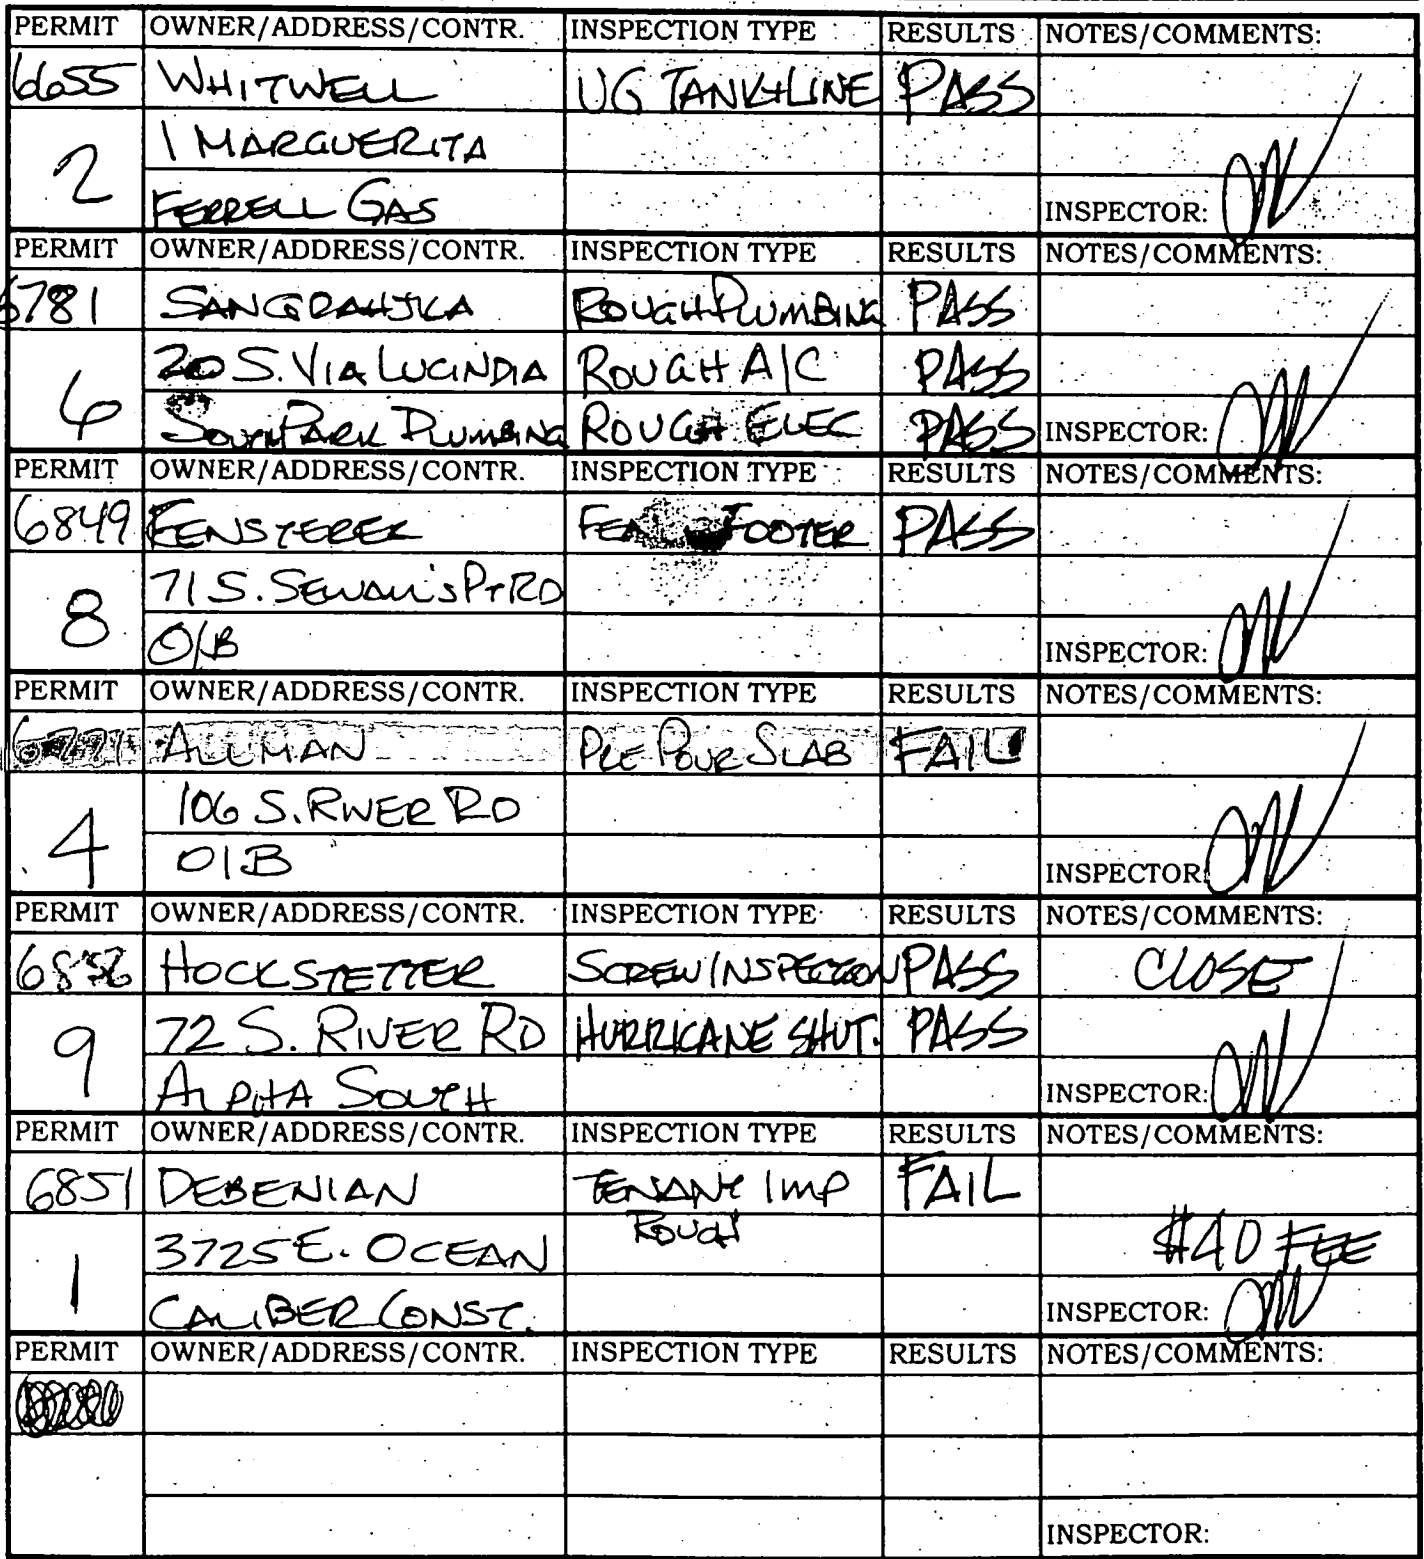 PERMIT OWNER/ADDRESS/CONTR. INSPECTION TYPE RESULTS NOTES/COMMENTS:
6655 WHITWELL UG TANK+LINE PASS
2 1 MARGUERITA
FERRELL GAS INSPECTOR:
PERMIT OWNER/ADDRESS/CONTR. INSPECTION TYPE RESULTS NOTES/COMMENTS:
6781 ROUGH PLUMBING PASS
6 20 S. VIA LUCINDIA ROUGH A/C PASS
SOUTH PARK PLUMBING ROUGH ELEC PASS INSPECTOR:
PERMIT OWNER/ADDRESS/CONTR. INSPECTION TYPE RESULTS NOTES/COMMENTS:
6849 FENSTERER FOOTER PASS
8 71 S. SEWALL'S PT RD
O/B INSPECTOR:
PERMIT OWNER/ADDRESS/CONTR. INSPECTION TYPE RESULTS NOTES/COMMENTS:
6771 ALLMAN PRE POUR SLAB FAIL
4 106 S. RIVER RD
O/B INSPECTOR:
PERMIT OWNER/ADDRESS/CONTR. INSPECTION TYPE RESULTS NOTES/COMMENTS:
HOCKSTETTER SCREW INSPECTION PASS CLOSE
9 72 S. RIVER RD HURRICANE SHUT. PASS
ALPHA SOUTH INSPECTOR:
PERMIT OWNER/ADDRESS/CONTR. INSPECTION TYPE RESULTS NOTES/COMMENTS:
6851 DEBENIAN TENANT IMP FAIL
1 3725 E. OCEAN ROUGH $40 FEE
CALIBER CONST. INSPECTOR:
PERMIT OWNER/ADDRESS/CONTR. INSPECTION TYPE RESULTS NOTES/COMMENTS:
INSPECTOR: